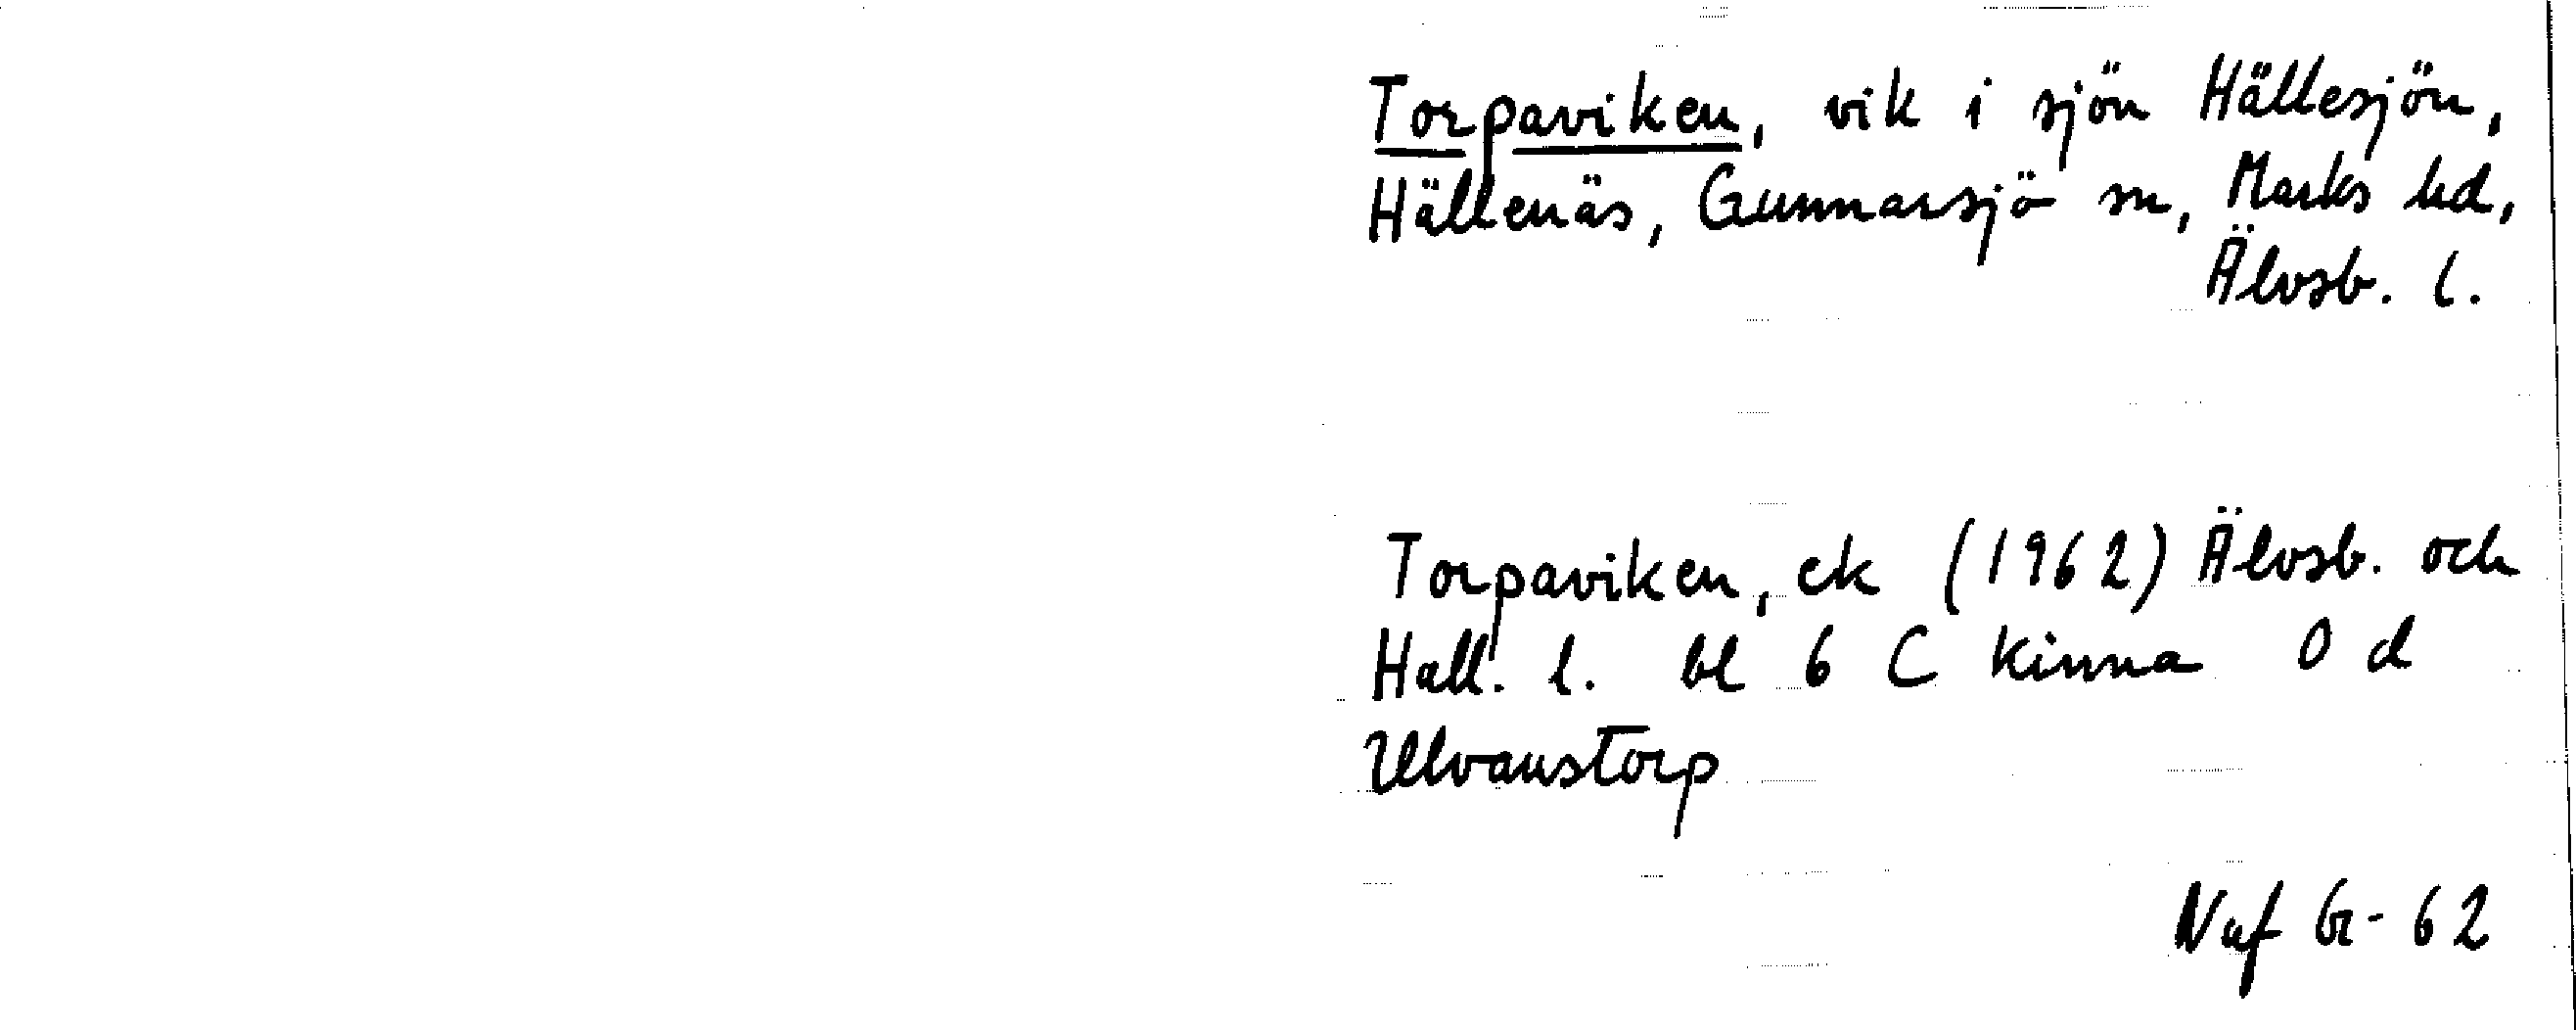 Torpaviken, vik i sjön Hällesjön,
Hällenäs, Gunnarsjö sn, Marks hd,
Älvsb. l.
Torpaviken, ek (1962) Älvsb. och
Hall. l. bl 6 C Kinna 0 d
Ulvanstorp
62